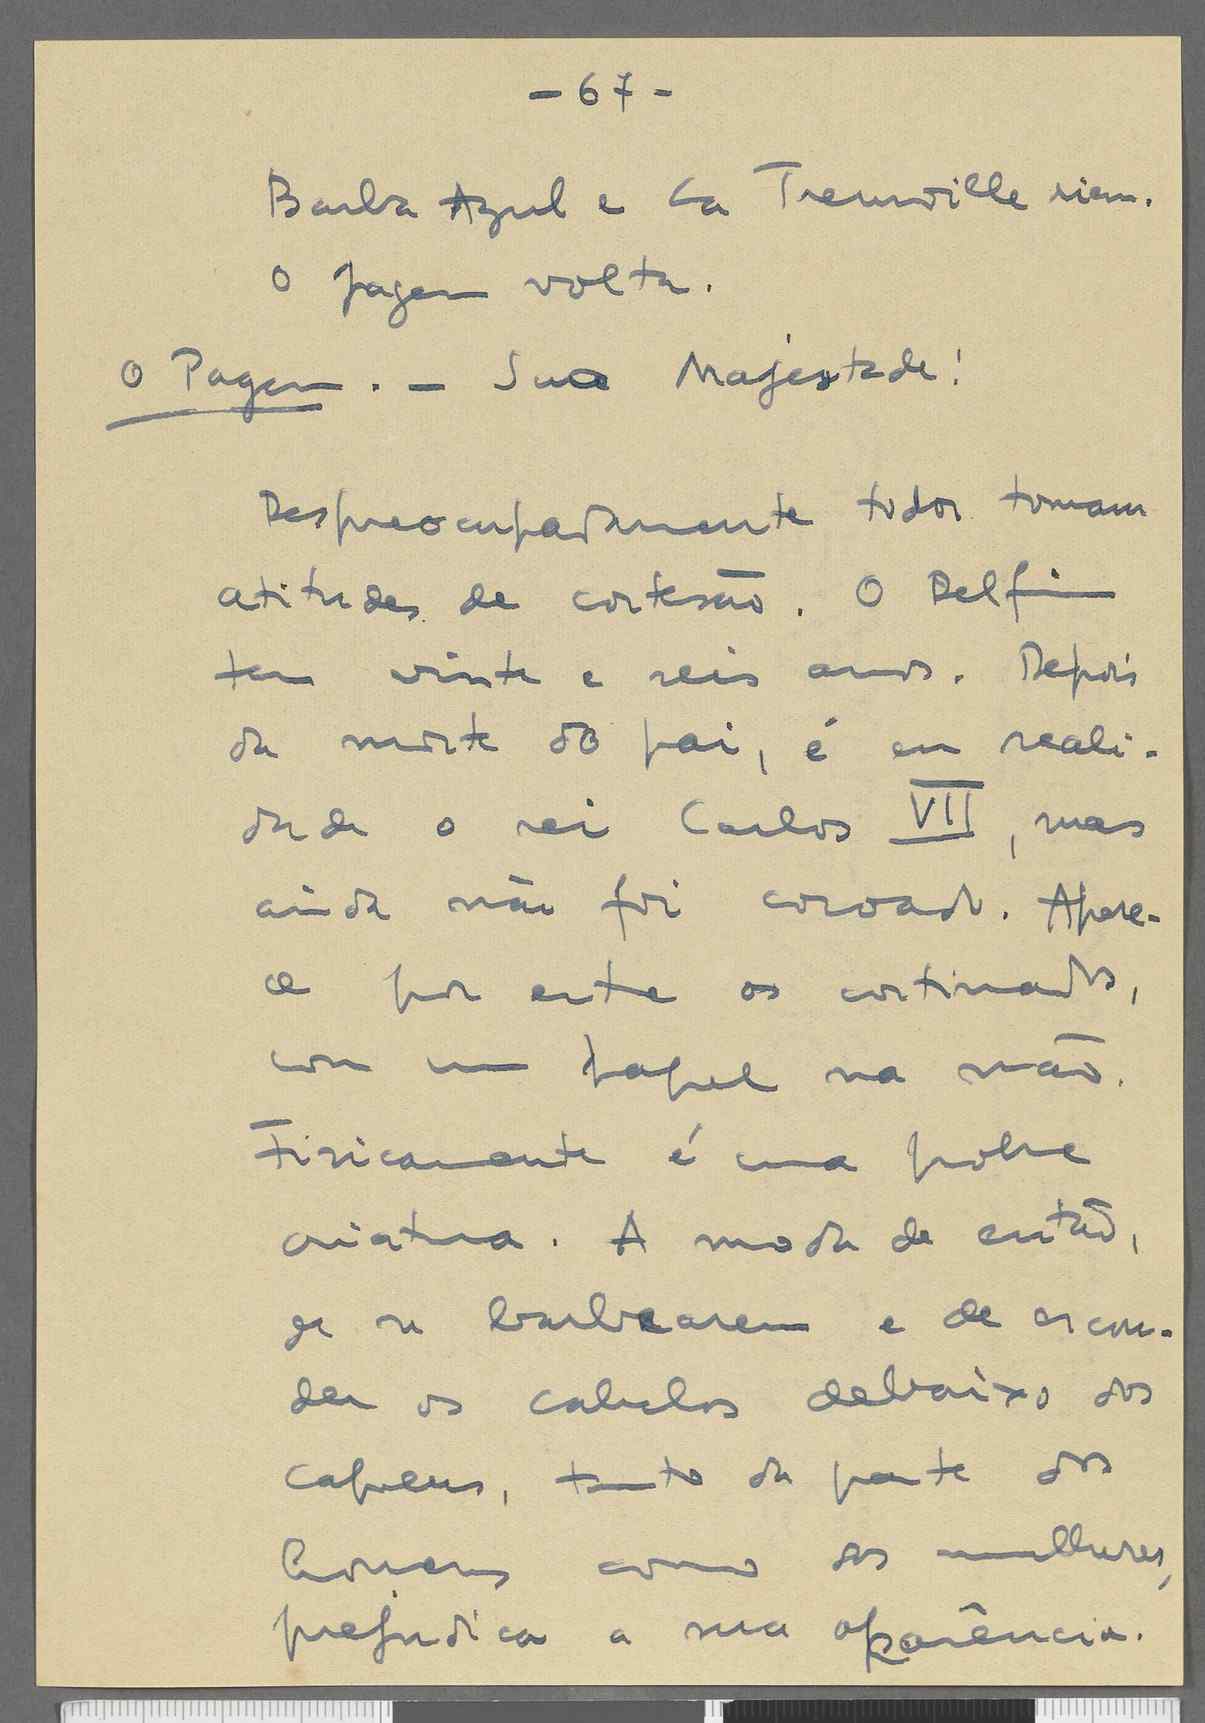 - 67 -
Barba Azul e La Tremouille riem.
O pagem volta.
O Pagem. - Sua Majestade!
Despreocupadamente todos tomam
atitudes de cortesão. O Delfim
tem vinte e seis anos. Depois
da morte do pai, é em reali-
dade o rei Carlos VII, mas
ainda não foi coroado. Apare-
ce por entre os cortinados,
com um papel na mão.
Fisicamente é uma pobre
criatura. A moda de então,
de se barbearem e de escon-
der os cabelos debaixo dos
capreus, tanto da parte dos
homens como das mulheres,
prejudica a sua aparência.